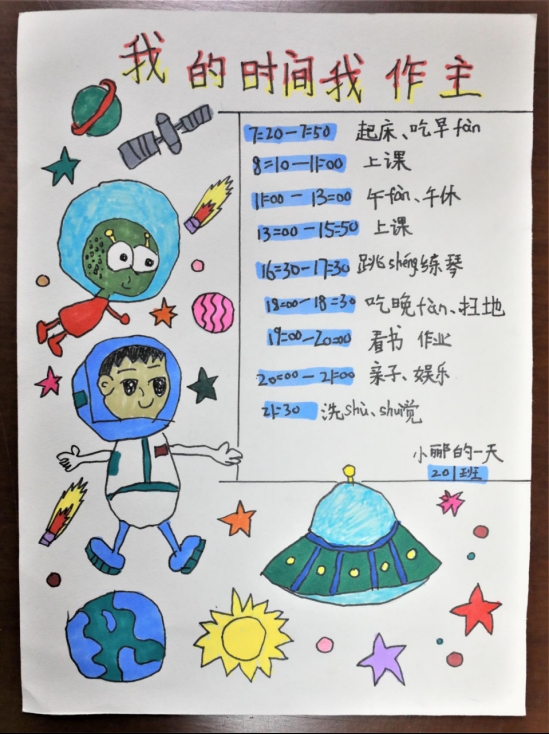 我的时间我作主
7:20-7:50 起床、吃早fàn
8:10-11:00 上课
11:00-13:00 午fàn、午休
13:00-15:50 上课
16:30-17:30 跳shéng练琴
18:00-18:30 吃晚fàn、扫地
19:00-20:00 看书 作业
20:00-21:00 亲子、娱乐
21:30 洗shù、shuì觉
小郦的一天
201班